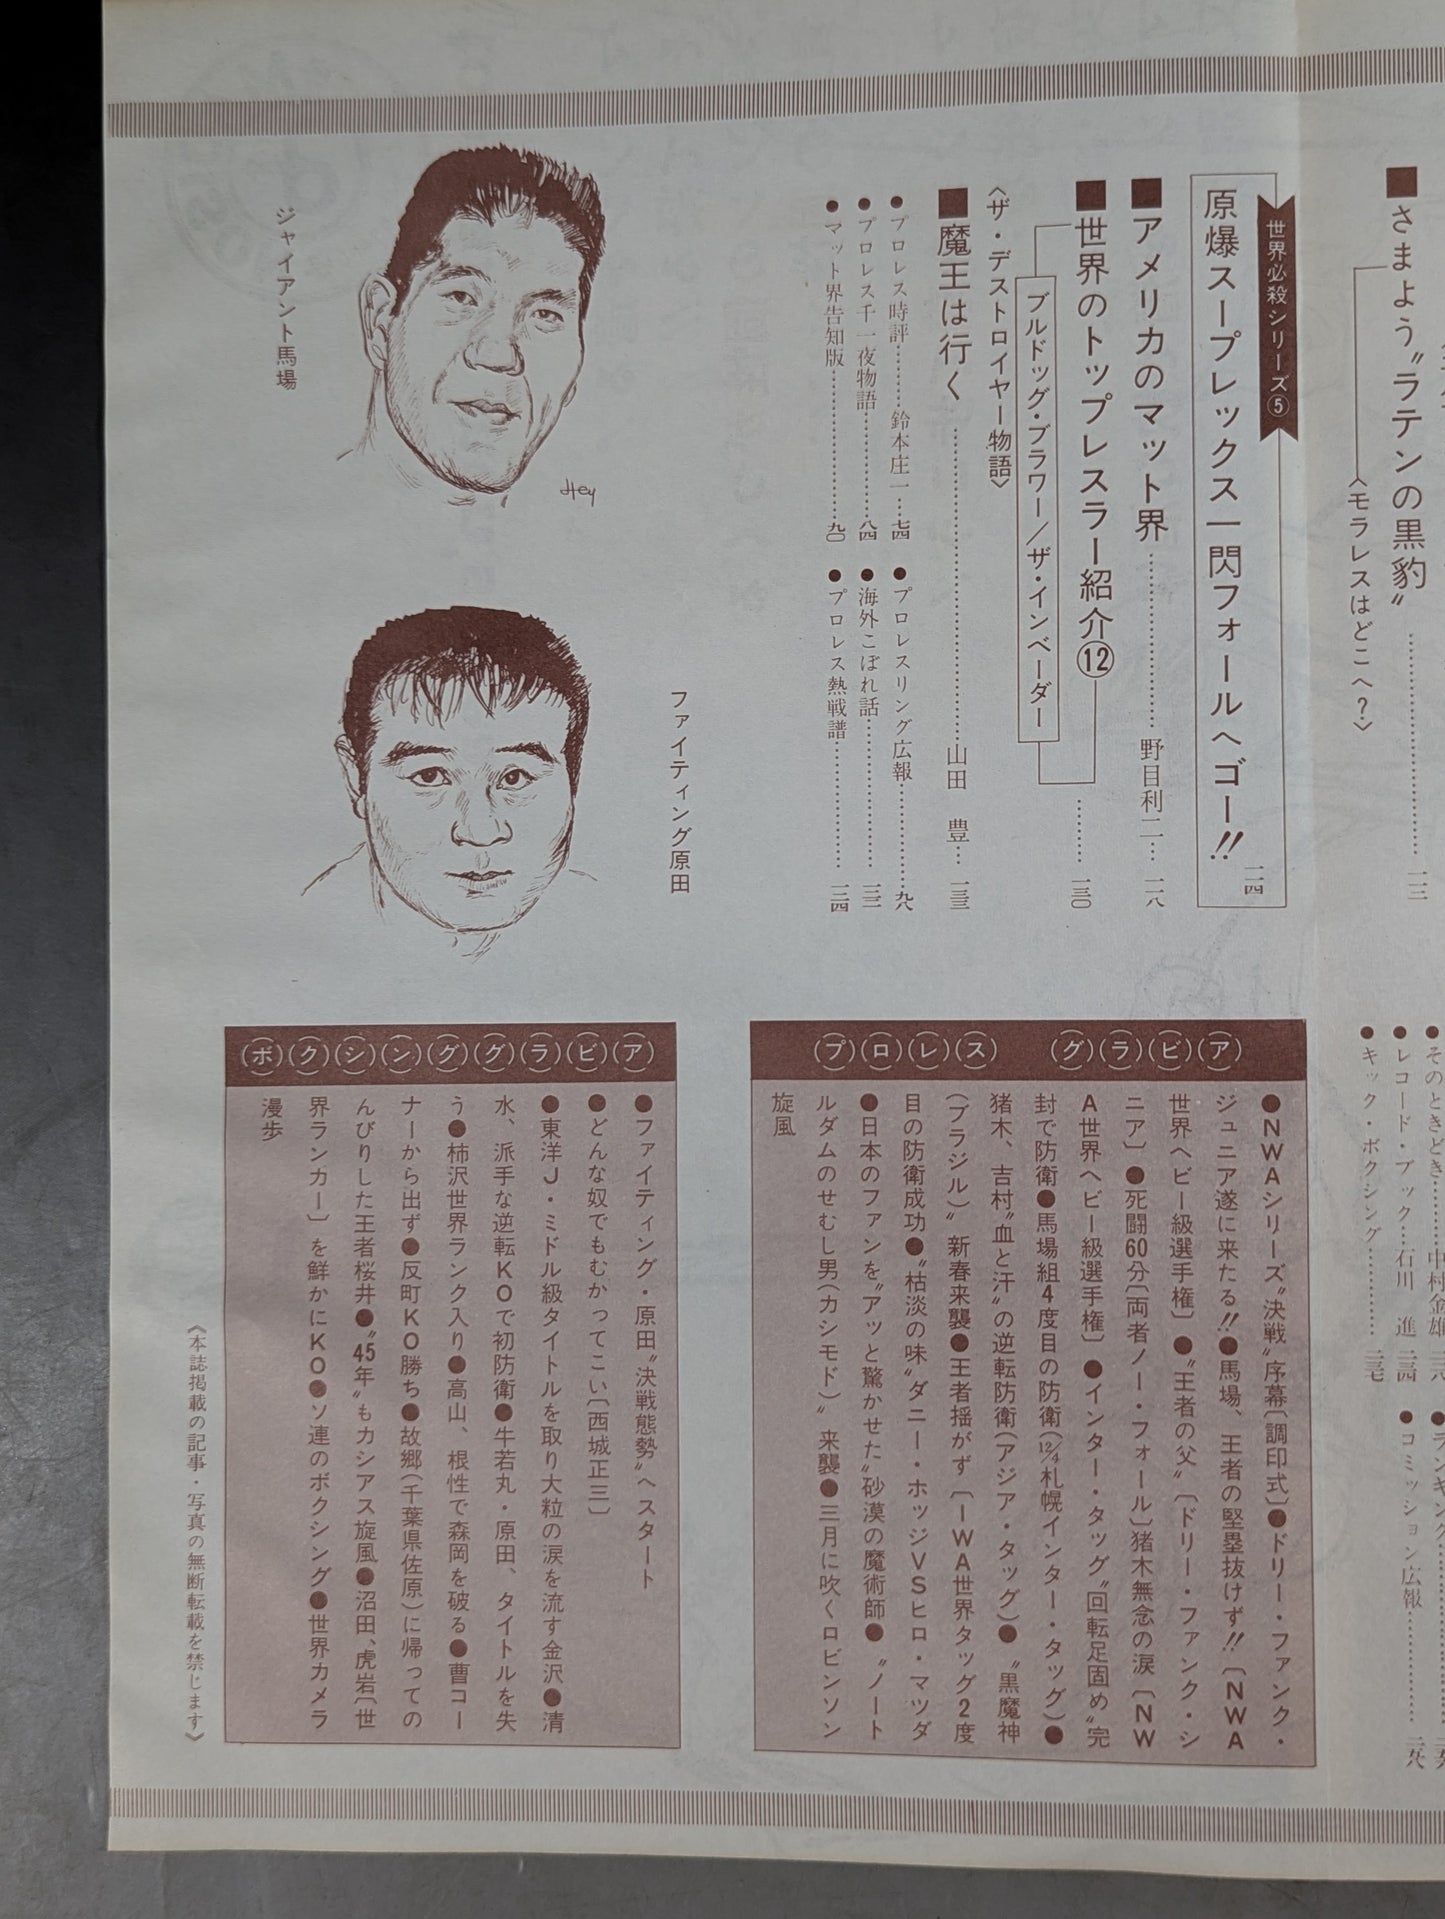 ■さまよう〝ラテンの黒豹〟……一一二
〈モラレスはどこへ?〉
世界必殺シリーズ⑤
原爆スープレックス一閃フォールへゴー!!
一一四
■アメリカのマット界……野目利二…一一八
■世界のトップレスラー紹介⑫……一三〇
ブルドッグ・ブラワー/ザ・インベーダー
〈ザ・デストロイヤー物語〉
■魔王は行く……山田 豊…一三三
●プロレス時評……鈴本庄一…七四
●プロレスリング広報……九八
●プロレス千一夜物語……八四
●海外こぼれ話……
●マット界告知版……九〇
●プロレス熱戦譜……一二四
ジャイアント馬場
Hey
ファイティング原田
●そのときどき……中村金雄
●レコード・ブック…石川 進
●キック・ボクシング……
●コミッション広報……
プロレス グラビア
●NWAシリーズ〝決戦〟序幕〔調印式〕●ドリー・ファンク・
ジュニア遂に来たる!!●馬場、王者の堅塁抜けず!!〔NWA
世界ヘビー級選手権〕●〝王者の父〟〔ドリー・ファンク・シ
ニア〕●死闘60分〔両者ノー・フォール〕猪木無念の涙〔NW
A世界ヘビー級選手権〕●インター・タッグ〝回転足固め〟完
封で防衛●馬場組4度目の防衛(12/4札幌インター・タッグ)●
猪木、吉村〝血と汗〟の逆転防衛(アジア・タッグ)●〝黒魔神
(ブラジル)〟新春来襲●王者揺がず〔IWA世界タッグ2度
目の防衛成功●〝枯淡の味〟ダニー・ホッジVSヒロ・マツダ
●日本のファンを〝アッと驚かせた〟砂漠の魔術師●〝ノート
ルダムのせむし男(カシモド)〟来襲●三月に吹くロビンソン
旋風
ボクシンググラビア
●ファイティング・原田〝決戦態勢〟へスタート
●どんな奴でもむかってこい〔西城正三〕
●東洋J・ミドル級タイトルを取り大粒の涙を流す金沢●清
水、派手な逆転KOで初防衛●牛若丸・原田、タイトルを失
う●柿沢世界ランク入り●高山、根性で森岡を破る●曹コー
ナーから出ず●反町KO勝ち●故郷(千葉県佐原)に帰っての
んびりした王者桜井●〝45年〟もカシアス旋風●沼田、虎岩〔世
界ランカー〕を鮮かにKO●ソ連のボクシング●世界カメラ
漫歩
《本誌掲載の記事・写真の無断転載を禁じます》